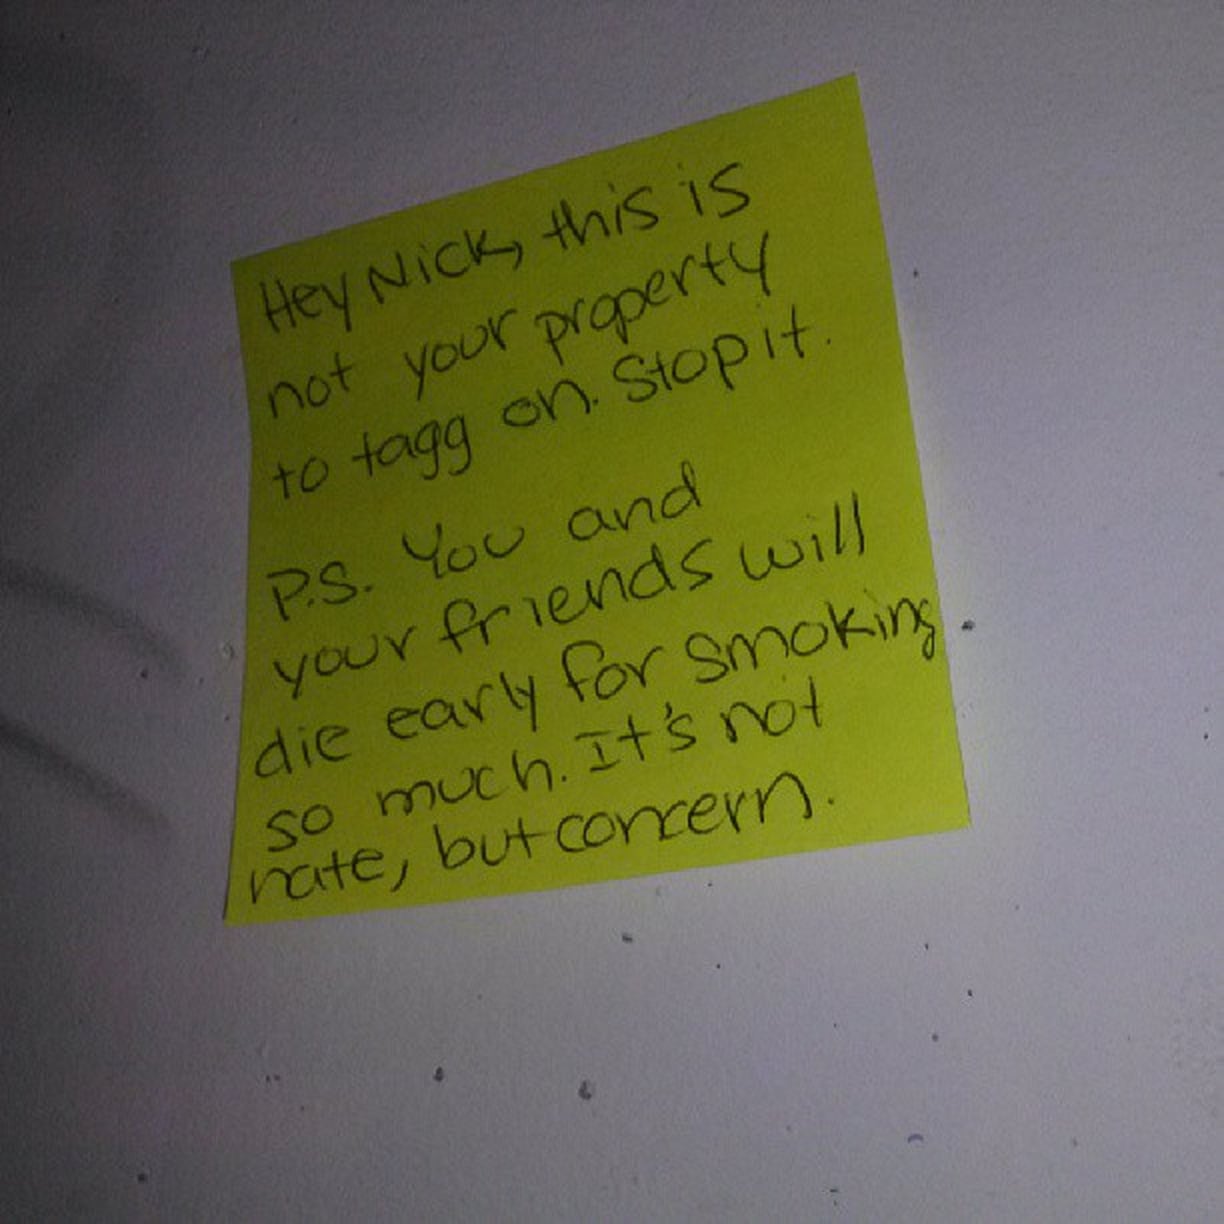 Hey Nick, this is
not your property
to tagg on. Stop it.
P.S. You and
your friends will
die early for smoking
so much. It's not
hate, but concern.